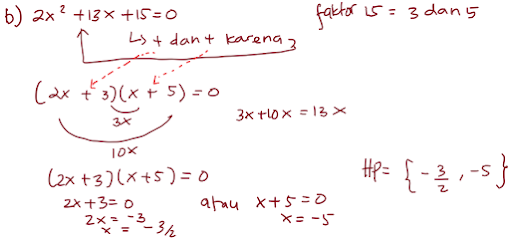 b) 2x² + 13x + 15 = 0
faktor 15 = 3 dan 5
↳ + dan + karena
(2x + 3)(x + 5) = 0
3x
3x + 10x = 13x
10x
(2x + 3)(x + 5) = 0
HP = { - 3/2 , -5 }
2x + 3 = 0 atau x + 5 = 0
2x = -3 x = -5
x = -3/2